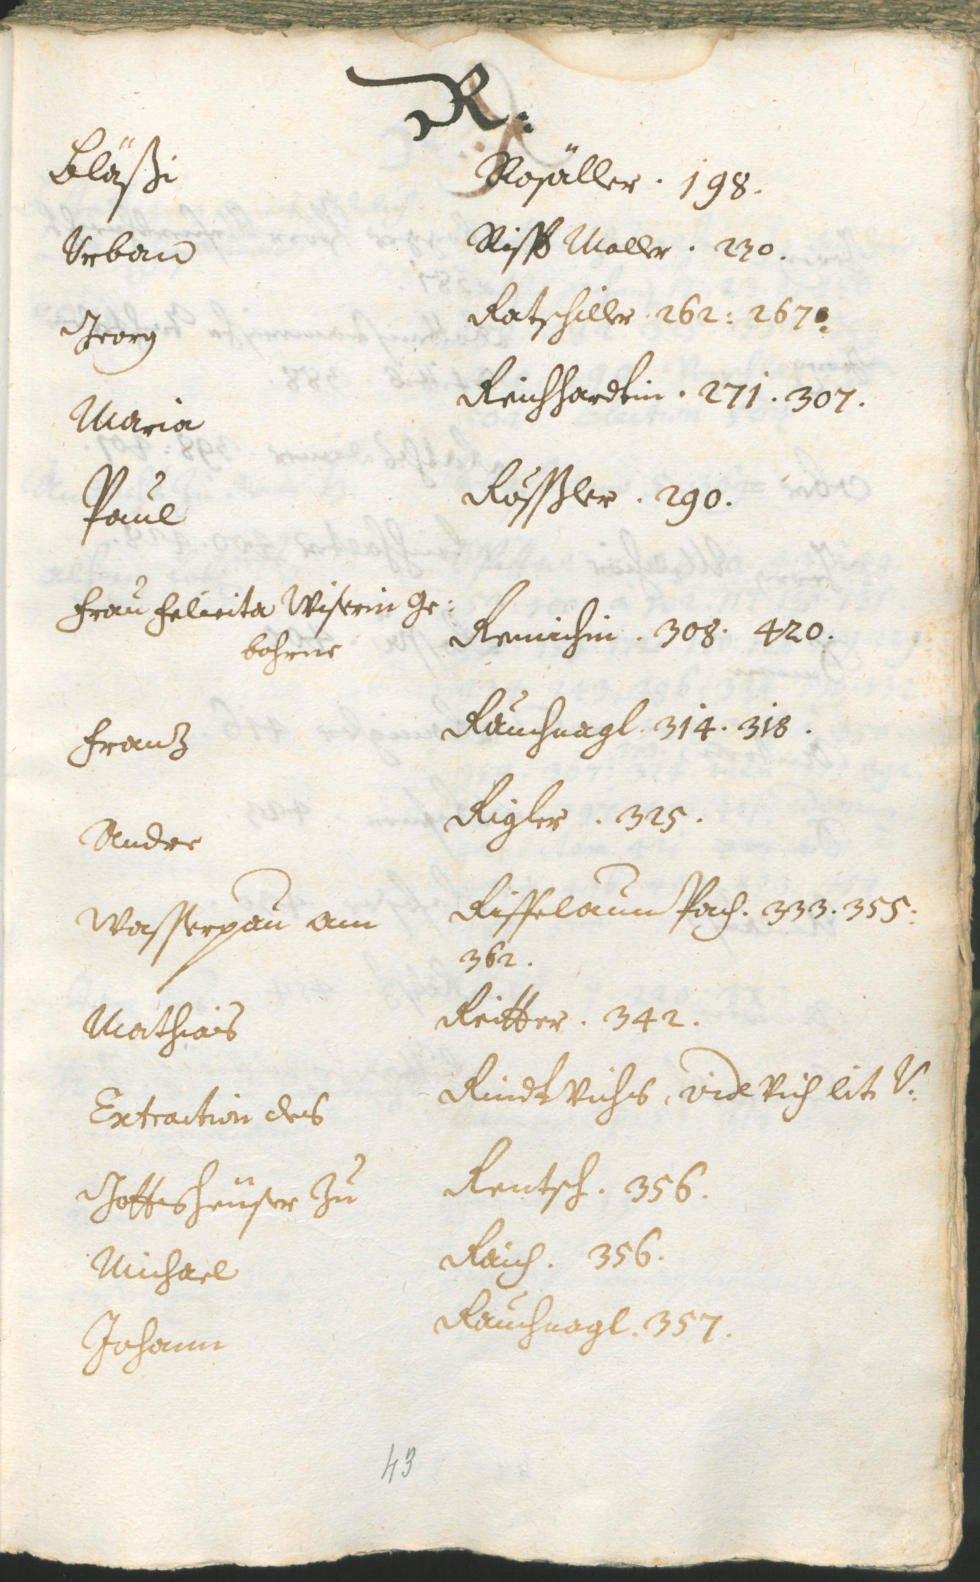 R:
Bläßi Rosäller. 198.
Urban Moller. 230.
Georg Ratschiller. 262: 267.
Maria Reichhardtin. 271. 307.
Paul Rößler. 290.
Frau Felicita Wiserin ge:
bohrne Remichin. 308. 420.
Franz Rauchnagl. 314. 318.
Andre Rigler. 325.
Wasserpau am Riffelaun Pach. 333. 355:
362.
Mathias Reitter. 342.
Extraction des Rindt Vichs, vide Vich lit. V.
Gottsheuser zu Rentsch. 356.
Michael Raich. 356.
Johann Rauchnagl. 357.
43